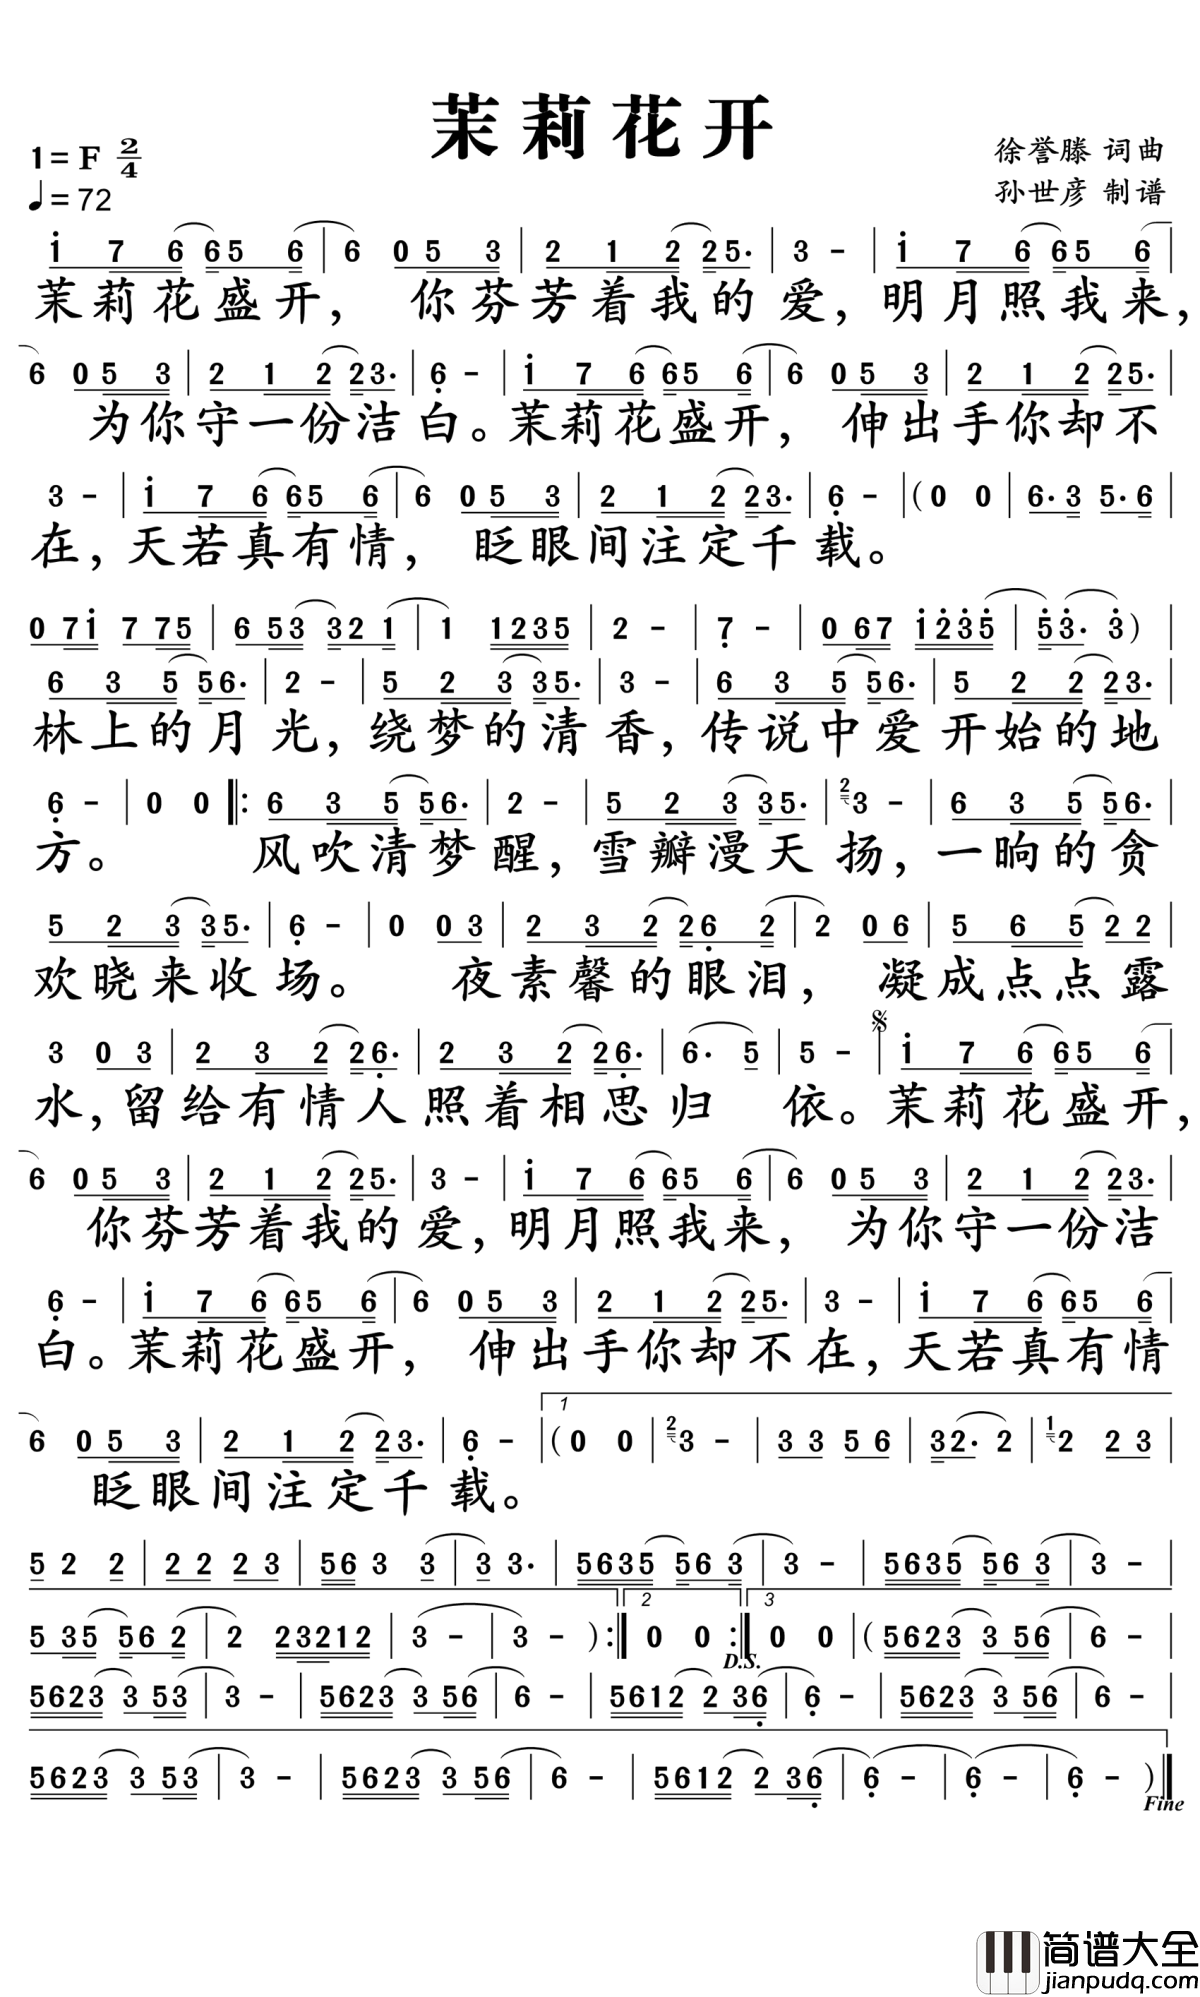 茉莉花开
1=F 2/4
徐誉滕 词曲
♩=72
孙世彦 制谱
i 7 6 6 5 6 | 6 0 5 3 | 2 1 2 2 5· | 3 - | i 7 6 6 5 6 |
茉莉花盛开， 你芬芳着我的爱，明月照我来，
6 0 5 3 | 2 1 2 2 3· | 6 - | i 7 6 6 5 6 | 6 0 5 3 | 2 1 2 2 5· |
为你守一份洁白。茉莉花盛开， 伸出手你却不
3 - | i 7 6 6 5 6 | 6 0 5 3 | 2 1 2 2 3· | 6 - | (0 0 | 6· 3 5· 6 |
在，天若真有情， 眨眼间注定千载。
0 7 i 7 7 5 | 6 5 3 3 2 1 | 1 1 2 3 5 | 2 - | 7 - | 0 6 7 i 2 3 5 | 5 3· 3) |
6 3 5 5 6· | 2 - | 5 2 3 3 5· | 3 - | 6 3 5 5 6· | 5 2 2 2 3· |
林上的月光，绕梦的清香，传说中爱开始的地
6 - | 0 0 |: 6 3 5 5 6· | 2 - | 5 2 3 3 5· | 2 3 - | 6 3 5 5 6· |
方。 风吹清梦醒，雪瓣漫天扬，一晌的贪
5 2 3 3 5· | 6 - | 0 0 3 | 2 3 2 2 6 2 | 2 0 6 | 5 6 5 2 2 |
欢晓来收场。 夜素馨的眼泪， 凝成点点露
3 0 3 | 2 3 2 2 6· | 2 3 2 2 6· | 6· 5 | 5 - | i 7 6 6 5 6 |
水，留给有情人照着相思归 依。茉莉花盛开，
6 0 5 3 | 2 1 2 2 5· | 3 - | i 7 6 6 5 6 | 6 0 5 3 | 2 1 2 2 3· |
你芬芳着我的爱，明月照我来， 为你守一份洁
6 - | i 7 6 6 5 6 | 6 0 5 3 | 2 1 2 2 5· | 3 - | i 7 6 6 5 6 |
白。茉莉花盛开， 伸出手你却不在，天若真有情
1
6 0 5 3 | 2 1 2 2 3· | 6 - | (0 0 | 2 3 - | 3 3 5 6 | 3 2· 2 | 1 2 2 3 |
眨眼间注定千载。
5 2 2 | 2 2 2 3 | 5 6 3 3 | 3 3· | 5 6 3 5 5 6 3 | 3 - | 5 6 3 5 5 6 3 | 3 - |
2 3
5 3 5 5 6 2 | 2 2 3 2 1 2 | 3 - | 3 - ) :| 0 0 :| 0 0 | (5 6 2 3 3 5 6 | 6 - |
D.S.
5 6 2 3 3 5 3 | 3 - | 5 6 2 3 3 5 6 | 6 - | 5 6 1 2 2 3 6 | 6 - | 5 6 2 3 3 5 6 | 6 - |
5 6 2 3 3 5 3 | 3 - | 5 6 2 3 3 5 6 | 6 - | 5 6 1 2 2 3 6 | 6 - | 6 - | 6 - ) |
Fine
简谱大全
jianpudq.com